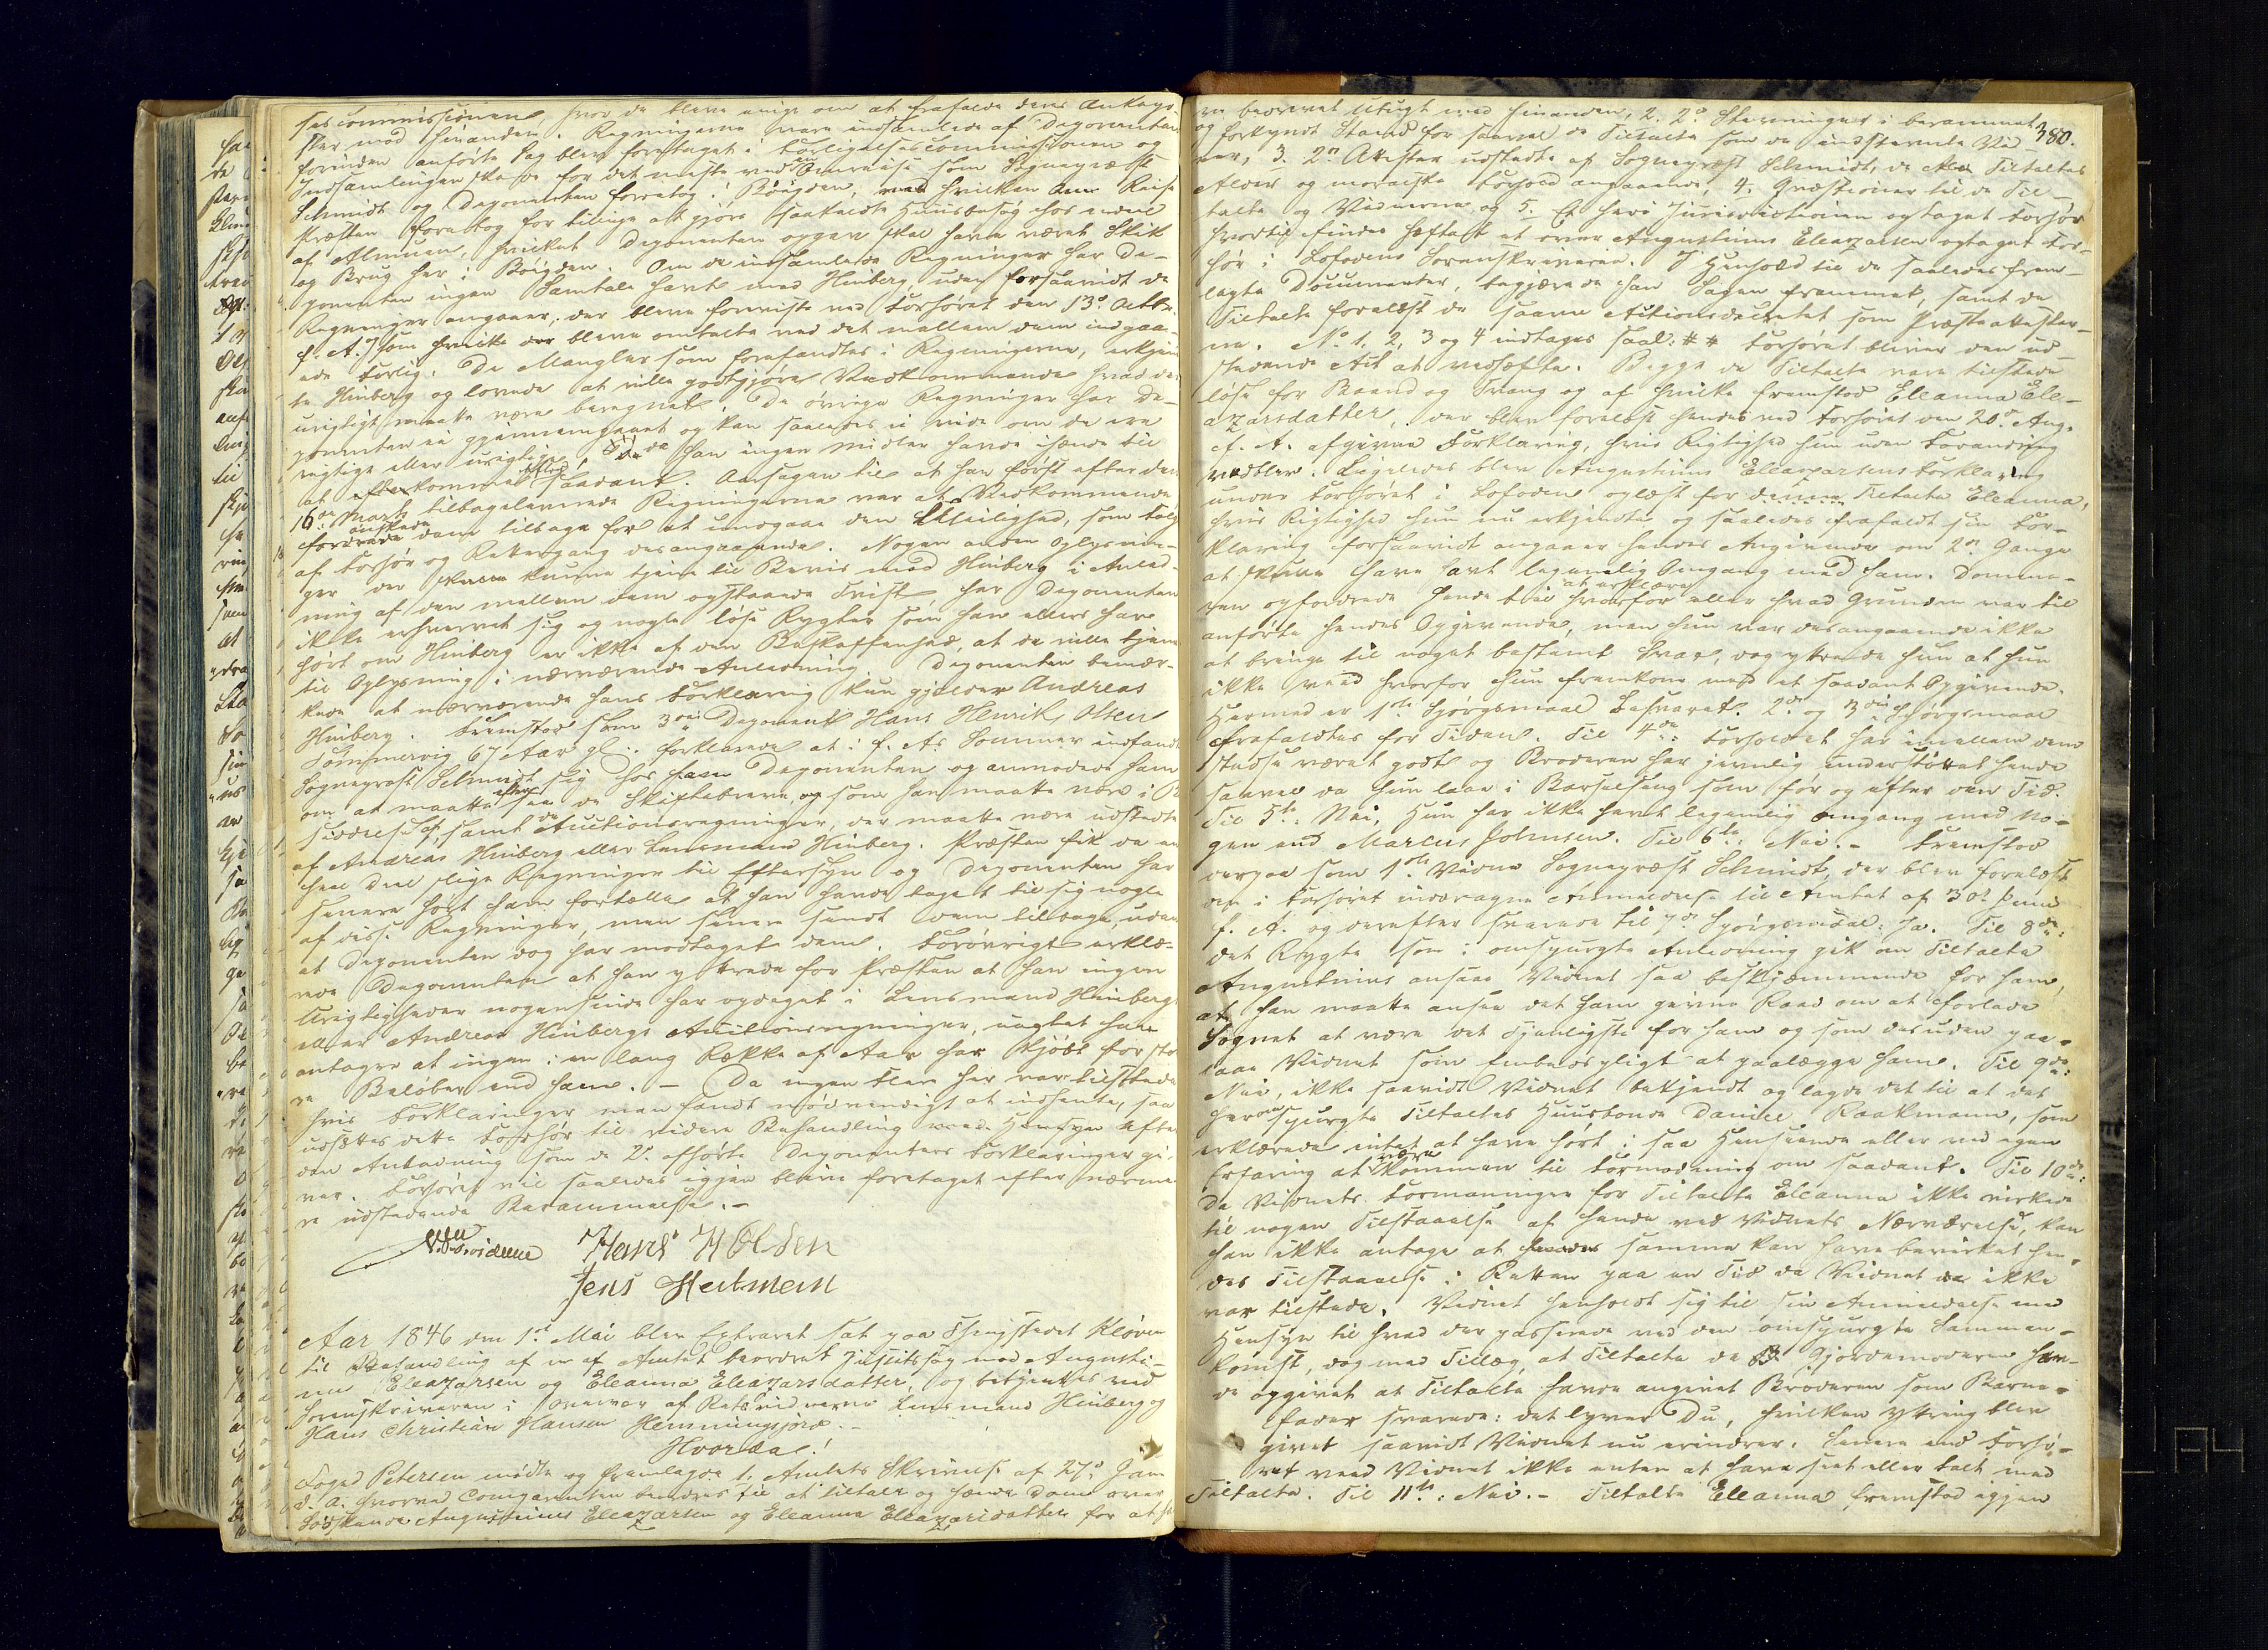 sescommissionen, hvor de bleve enige om at frafalde deres Ankeposter
ster mod hinanden. Regningerne vare indsamlede af Deponenten
forinden anførte Sag blev foretaget i Forligelsescommissionen og
Indsamlingen skede for det meste ved en Omreise som Sognepræst
Schmidt og Deponenten foretog i Bøigden, ved hvilken Reise
Præsten foretog for tillige at gjøre saakaldte Huusbesøg hos endeel
af Almuen, hvilket Deponenten opgav skal have været Skik
og Brug her i Bøigden. Om de indsamlede Regninger har De-
ponenten ingen Samtale havt med Hinberg, uden forsaavidt de
Regninger angaaer, der bleve foreviste ved Forhøret den 13de Octbr.
f. A. som hvilke der bleve omtalte ved det mellem dem indgaa-
ede Forlig. De Mangler som forefandtes i Regningerne, erkjend
te Hinberg og lovede at ville godtgjøre Vedkommende hvad der
urigtigt maatte være beregnet. De øvrige Regninger har De-
ponenten ei gjennemgaaet og kan saaledes ei vide om de ere
rigtige eller urigtige, da han ingen Midler havde ihænde til
at efterkomme saadant. Aarsagen til at han først efter den
16de Marts tilbageleverede Regningerne var at Vedkommende
forlangte ønskede dem tilbage for at undgaae den Uleilighed, som Følge
af Forhør og Rettergang desangaaende. Nogen anden Oplysnin-
ger der skulde kunne tjene til Beviis mod Hinberg i Anled-
ning af den mellem dem opstaaede Tvist, har Deponenten
ikke erhvervet sig og nogle løse Rygter som han ellers har
hørt om Hinberg er ikke af den Beskaffenhed, at de ville tjene
til Oplysning i nærværende Anledning. Deponenten bemær-
kede at nærværende hans Forklaring kun gjælder Andreas
Hinberg. Fremstod som 3die Deponent Hans Henrik Olsen
Sommervig 67 Aar gl: forklarede at i f. A. Sommer indfandt
Sognepræst Schmidt sig hos ham Deponenten og anmodede ham
om at maatte see de Skiftebreve, som han maatte være i B
siddelse af, samt de Auctionsregninger, der maatte være udstedte
af Andreas Hinberg eller Lensmand Hinberg. Præsten fik da en
heel Deel slige Regninger til Eftersyn og Deponenten har
senere hørt ham fortælle at han havde taget til sig nogle
af disse Regninger, men senere sendt dem tilbage, uden
at Deponenten dog har modtaget dem. Forøvrigt erklæ-
rede Deponenten at han yttrede for Præsten at han ingen
Urigtigheder nogensinde har opdaget i Lensmand Hinbergs
eller Andreas Hinbergs Auctionsregninger, uagtet han
antager at ingen i en lang Række af Aar har kjøbt for stør
re Beløber end ham. – Da ingen Flere her var tilstede
hvis Forklaringer man fandt nødvendigt at indhente, saa
udsættes dette Forhør til videre Behandling med Hensyn efter
den Anledning som de 2de afhørte Deponenters Forklaringer gi-
ver. Forhøret vil saaledes igjen blive foretaget efter nærme
re udstedende Berammelse. –
Hans H Olsen
Jens Heitmann
Aar 1846 den 1ste Mai blev Extraret sat paa Thingstedet Kløven
til Behandling af en af Amtet beordret Justitssag mod Augusti-
nus Eleazarsen og Eleanna Eleazarsdatter, og betjentes ved
Sorenskriveren i Overvær af Retsvidnerne Lensmand Hinberg og
Hans Christian Hansen Hemmingsjord. –
Hvorda!
Foged Petersen mødte og fremlagde 1. Amtets Skrivelse af 27de Jan
d. A. hvorved Comparenten beordres til at tiltale og hænde Dom over
Sødskende Augustinus Eleazarsen og Eleanna Eleazarsdatter for at h
380.
ve bedrevet Utugt med hinanden, 2. 2de Stævninger i berammet
og forkyndt Stand for saavel de Tiltalte som de indstævnte Vid
ner, 3. 2de Attester udstedte af Sognepræst Schmidt, de Tiltaltes
Alder og moralske Forhold angaaende, 4. Qvæstioner til de Til-
talte og Vidnerne og 5. Et her i Jurisdictionen optaget Forhør
hvortil findes hæftet et over Augustinus Eleazarsen optaget For-
hør i Lofodens Sorenskriverie. I Henhold til de saaledes frem-
lagte Documenter, begjærede han Sagen fremmet, samt de
Tiltalte forelæst de saavel Actionsdecretet som Præsteattester-
ne. No 1, 2, 3 og 4 indtages saal: ## Forhøret bliver den ud-
stedende Act at vedhæfte. Begge de Tiltalte vare tilstede
løse for Baand og Tvang og af hvilke fremstod Eleanna Ele-
azarsdatter, der blev forelæst hendes ved Forhøret den 20de Aug.
f. A. afgivne Forklaring, hvis Rigtighed hun uden Forandring
vedblev. Ligeledes blev Augustinus Eleazarsens Forklaring
under Forhøret i Lofoden oplæst for denne Tiltalte Eleanna,
hvis Rigtighed hun nu erkjendte og saaledes frafaldt sin For-
klaring forsaavidt angaaer hendes Angivende om 2de Gange
at skulle have havt legemlig Omgang med ham. Domme-
ren opfordrede hende til at erklære hvorfor eller hvad Grunden var til
anførte hendes Opgivende, men hun var desangaaende ikke
at bringe til noget bestemt Svar, dog yttrede hun at hun
ikke veed hvorfor hun fremkom med et saadant Opgivende.
Hermed er 1ste Spørgsmaal besvaret. 2de og 3die Spørgsmaal
frafaldtes for Tiden. Til 4de: Forholdet har imellem dem
stedse været godt og Broderen har jevnlig understøttet hende
saavel da hun laae i Barselseng som før og efter den Tid.
Til 5te: Nei, hun har ikke havt legemlig Omgang med No-
gen end Marcus Johnsen. Til 6te: Nei. – Fremstod
derpaa som 1ste Vidne Sognepræst Schmidt, der blev forelæst
den i Forhøret inddragne Anmeldelse til Amtet af 30te Juni
f. A. og derefter svarede til 7de Spørgsmaal: Ja. Til 8de:
det Rygte som i omspurgte Anledning gik om Tiltalte
Augustinus ansaae Vidnet saa beskjæmmende for ham,
at han maatte ansee det ham givne Raad om at forlade
Sognet at være det tjenligste for ham og som desuden paa-
laae Vidnet som Embedspligt at paalægge ham. Til 9de:
Nei, ikke saavidt Vidnet bekjendt og lagde det til at det
herom spurgte Tiltaltes Huusbonde Daniel Kaakmann, som
erklærede intet at have hørt i saa Henseende eller ved egen
Erfaring at være kommen til Formodning om saadant. Til 10de:
Da Vidnets Formaninger for Tiltalte Eleanna ikke virkede
til nogen Tilstaaelse af hende ved Vidnets Nærværelse, kan
han ikke antage at samme kan have bevirket hen-
des Tilstaaelse i Retten paa en Tid da Vidnet ikke
var tilstede. Vidnet henholdt sig til sin Anmeldelse med
Hensyn til hvad der passerede ved den omspurgte Sammen-
komst, dog med Tillæg, at Tiltalte da Gjordemoderen hav-
de opgivet at Tiltalte havde angivet Broderen som Barne-
fader svarede: det lyver Du, hvilken Yttring blev
givet saavidt Vidnet nu erindrer. Senere end Forhø-
ret veed Vidnet ikke enten at have seet eller talt med
Tiltalte. Til 11te: Nei. – Tiltalte Eleanna fremstod igjen